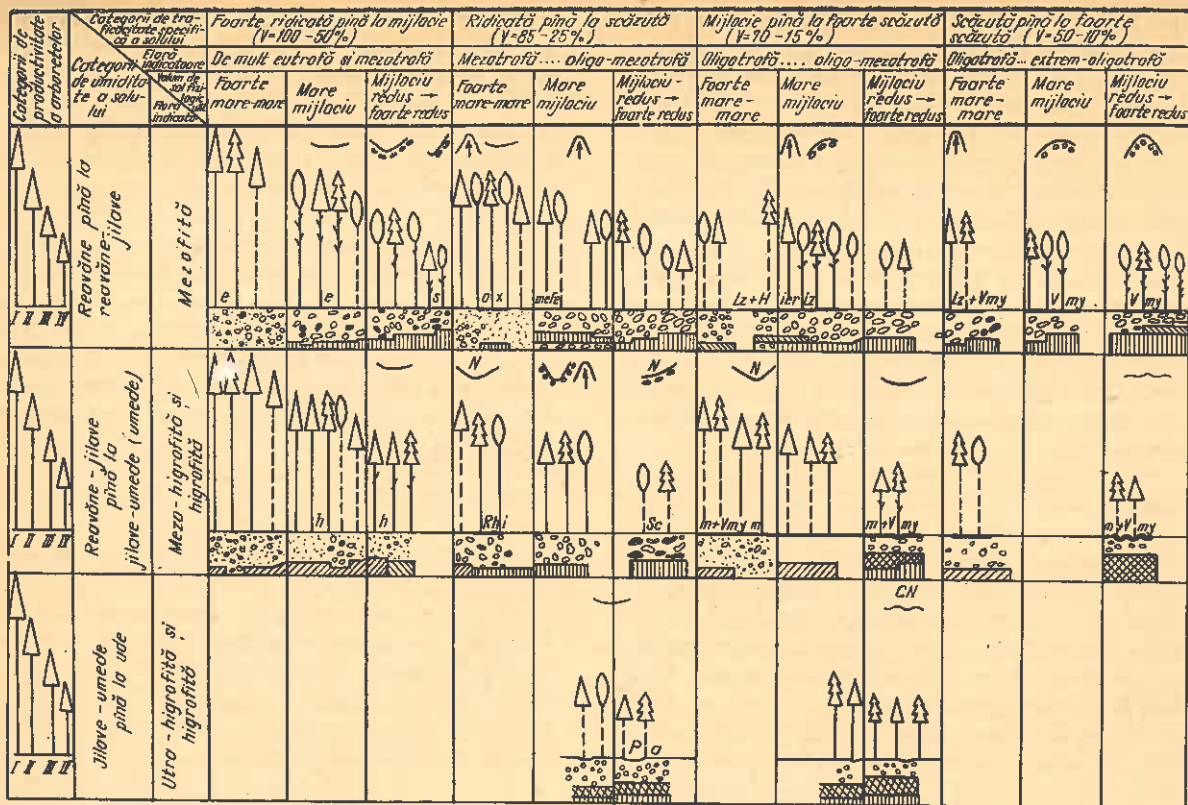 Categorii de
productivitate
a arboretelor
Categorii de tro-
ficitate specifi-
că a solului
Categorii
de umidita-
te a solu-
lui
Floră
indicatoare
Volum de
Floră
indicată
Foarte ridicată pînă la mijlocie
(V=100-50%)
De mult eutrofă și mezotrofă
Foarte
mare-mare
Mare
mijlociu
Mijlociu
redus →
foarte redus
Ridicată pînă la scăzută
(V=85-25%)
Mezotrofă.... oligo-mezotrofă
Foarte
mare-mare
Mare
mijlociu
Mijlociu-
redus →
foarte redus
Mijlocie pînă la foarte scăzută
(V=70-15%)
Oligotrofă.... oligo-mezotrofă
Foarte
mare-
mare
Mare
mijlociu
Mijlociu
redus →
foarte redus
Scăzută pînă la foarte
scăzută (V=50-10%)
Oligotrofă... extrem-oligotrofă
Foarte
mare-
mare
Mare
mijlociu
Mijlociu
redus →
foarte redus
I II III IV
Reavăne pînă la
reavăne-
jilave
Mezofită
e
e
s
o x
mefe
Lz+H
ier Lz
Lz+Vmy
V my
V my
I II III IV
Reavăne-jilave
pînă la
jilave-umede (umede)
Mezo-higrofită și
higrofită
h
h
N
Rhi
Sc
N
m+Vmy m
m+V my
m+V my
I II III IV
Jilave-umede
pînă la ude
Ultra-higrofită și
higrofită
P a
CN